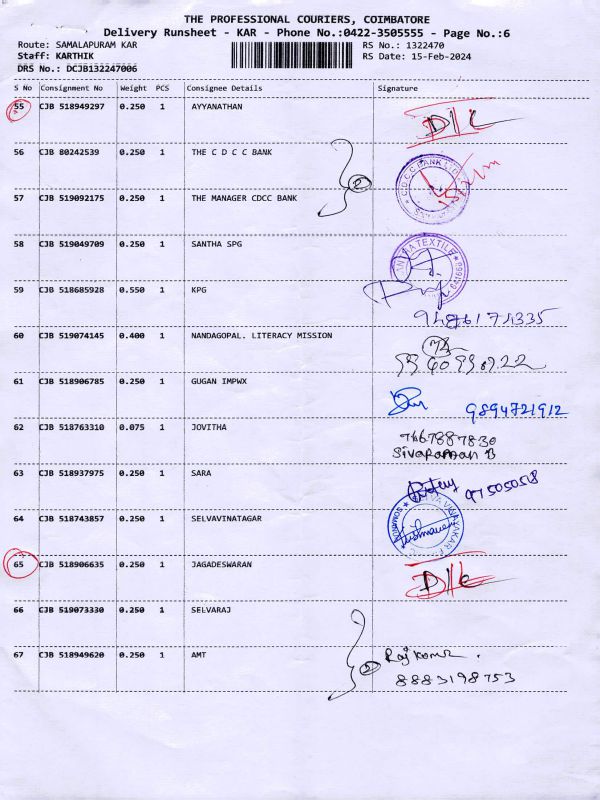 THE PROFESSIONAL COURIERS, COIMBATORE
Delivery Runsheet - KAR - Phone No.:0422-3505555 - Page No.:6
Route: SAMALAPURAM KAR RS No.: 1322470
Staff: KARTHIK RS Date: 15-Feb-2024
DRS No.: DCJB132247006
S No Consignment No Weight PCS Consignee Details Signature
55 CJB 518949297 0.250 1 AYYANATHAN D//L
56 CJB 80242539 0.250 1 THE C D C C BANK
2
C.D.C.C BANK LTD
57 CJB 519092175 0.250 1 THE MANAGER CDCC BANK
58 CJB 519049709 0.250 1 SANTHA SPG
TEXTILE
59 CJB 518685928 0.550 1 KPG
60 CJB 519074145 0.400 1 NANDAGOPAL. LITERACY MISSION
61 CJB 518906785 0.250 1 GUGAN IMPWX 9894721912
62 CJB 518763310 0.075 1 JOVITHA 7667887830
Sivaraman B
63 CJB 518937975 0.250 1 SARA
64 CJB 518743857 0.250 1 SELVAVINATAGAR
65 CJB 518906635 0.250 1 JAGADESWARAN D//L
66 CJB 519073330 0.250 1 SELVARAJ
67 CJB 518949620 0.250 1 AMT 2 Rajkumar.
8883198753